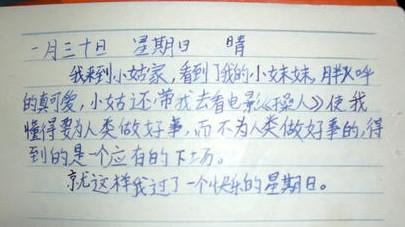 一月三十日 星期日 晴
我来到小姑家,看到了我的小妹妹,胖乎乎
的真可爱,小姑还带我去看电影《人》使我
懂得要为人类做好事,而不为人类做好事的,得
到的是一个应有的下场。
就这样我过了一个快乐的星期日。